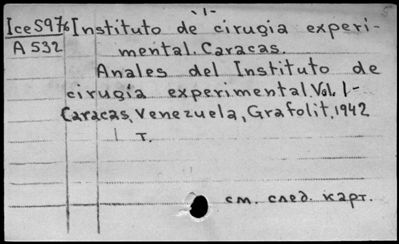 -1-
IceS976 Instituto de cirugia experi-
A 532 mental. Caracas.
Anales del Instituto de
cirugía experimental. Vol. 1-
Caracas, Venezuela, Grafolit, 1942
1 т.
см. след. карт.